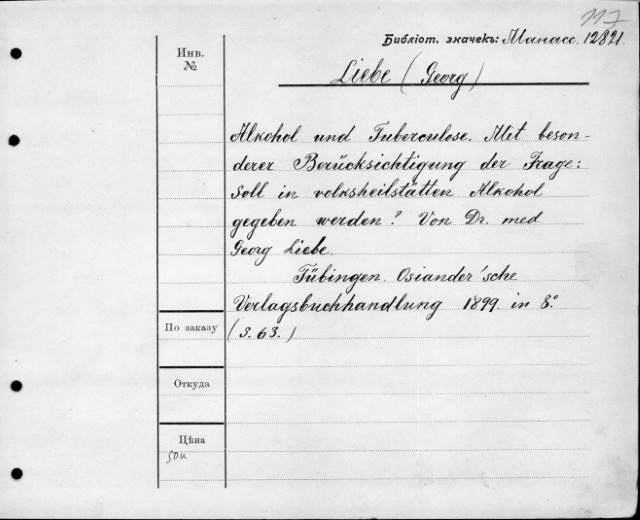 117
Библіот. значекъ: Манасс. 12821.
Инв.
№
Liebe (Georg)
Alkohol und Tuberculose. Mit beson-
derer Berücksichtigung der Frage:
Soll in volksheilstätten Alkohol
gegeben werden? Von Dr. med
Georg Liebe.
Tübingen. Osiander'sche
Verlagsbuchhandlung 1899. in 8.°
(S. 63.)
По заказу
Откуда
Цѣна
50к